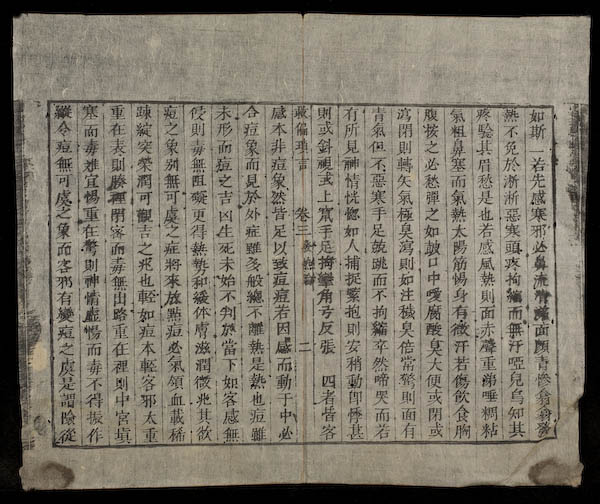 如斯一若先感寒邪必鼻流清涕面顏青慘翕翕發
熱不免於淅淅惡寒頭疼拘縮而無汗啞兒烏知其
疼驗其眉愁是也若感風熱則面赤聲重涕唾稠粘
氣粗鼻塞而氣熱太陽筋惕身有微汗若傷飲食胸
腹按之必愁彈之如皷口中噯腐酸臭大便或閉或
瀉閉則轉矢氣極臭瀉則如注穢臭倍常驚則面有
青氣但不惡寒手足跳而不拘縮卒然啼哭而若
有所見神情恍惚如人捕捉緊抱則安稍動即悸甚
則或斜視或上竄手足拘攣角弓反張 四者皆客
救偏瑣言 卷三 二
感本非痘象然皆足以致痘痘若因感而動于中必
合痘象而見於外症雖多般總不離熱是熱也痘雖
未形而痘之吉凶生死未始不判於當下如客感無
侵則毒無阻礙更得熱勢和緩体膚滋潤微兆其欲
痘之象別無可虞之症將來放點痘必氣領血載稀
疎綻突榮潤可觀吉之兆也輕如痘本輕客邪太重
重在表則腠裡閉密而毒無出路重在裡則中宮填
塞而毒難宜惕重在驚則神情虛惕而毒不得振作
縱令痘無可虞之象而客邪有變痘之虞是謂險從